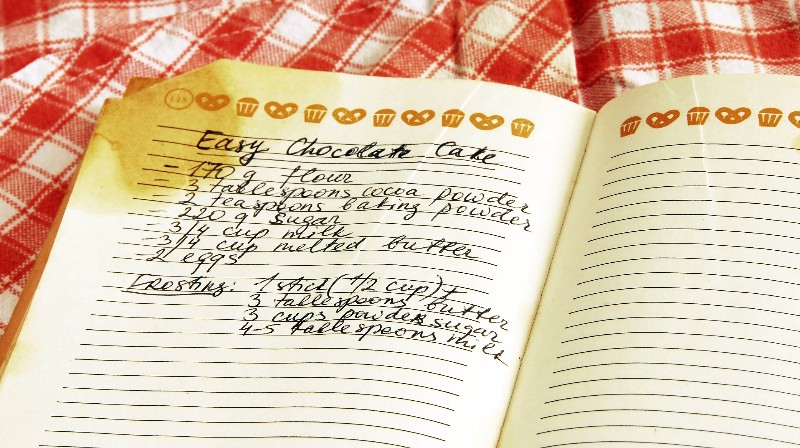 148
Easy Chocolate Cake
- 170 g flour
- 3 tablespoons cocoa powder
2 teaspoons baking powder
220 g sugar
3/4 cup milk
3/4 cup melted butter
2 eggs
Frosting: 1 stick (1/2 cup) +
3 tablespoons butter
3 cups powder sugar
4-5 tablespoons milk